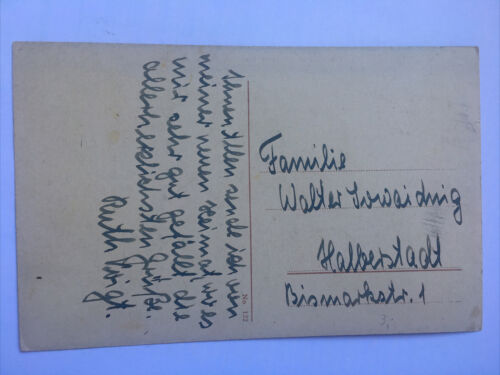 Ihnen Allen sende ich von
meiner neuen Heimat, wo es
mir sehr gut gefällt die
allerherzlichsten Grüße.
Ruth
No 122
Familie
Walter
Halberstadt
Bismarkstr. 1
3,-